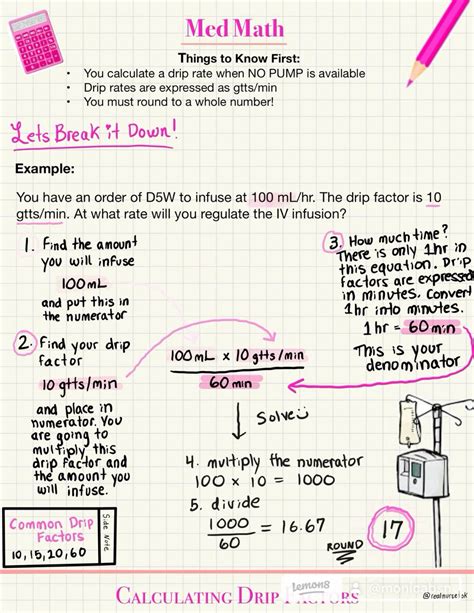 Med Math
Things to Know First:
• You calculate a drip rate when NO PUMP is available
• Drip rates are expressed as gtts/min
• You must round to a whole number!
Lets Break it Down!
Example:
You have an order of D5W to infuse at 100 mL/hr. The drip factor is 10
gtts/min. At what rate will you regulate the IV infusion?
1. Find the amount
you will infuse
100mL
and put this in
the numerator
2. Find your drip
factor
10 gtts/min
and place in
numerator. You
are going to
multiply this
drip factor and
the amount you
will infuse.
3. How much time?
There is only 1hr in
this equation. Drip
factors are expressed
in minutes. Convert
1hr into minutes.
1hr = 60min
This is your
denominator
100mL x 10 gtts/min
60 min
Solve
4. multiply the numerator
100 x 10 = 1000
5. divide
1000
60
= 16.67
ROUND
17
Common Drip
Factors
10, 15, 20, 60
Side Note
CALCULATING DRIP FACTORS
lemon8